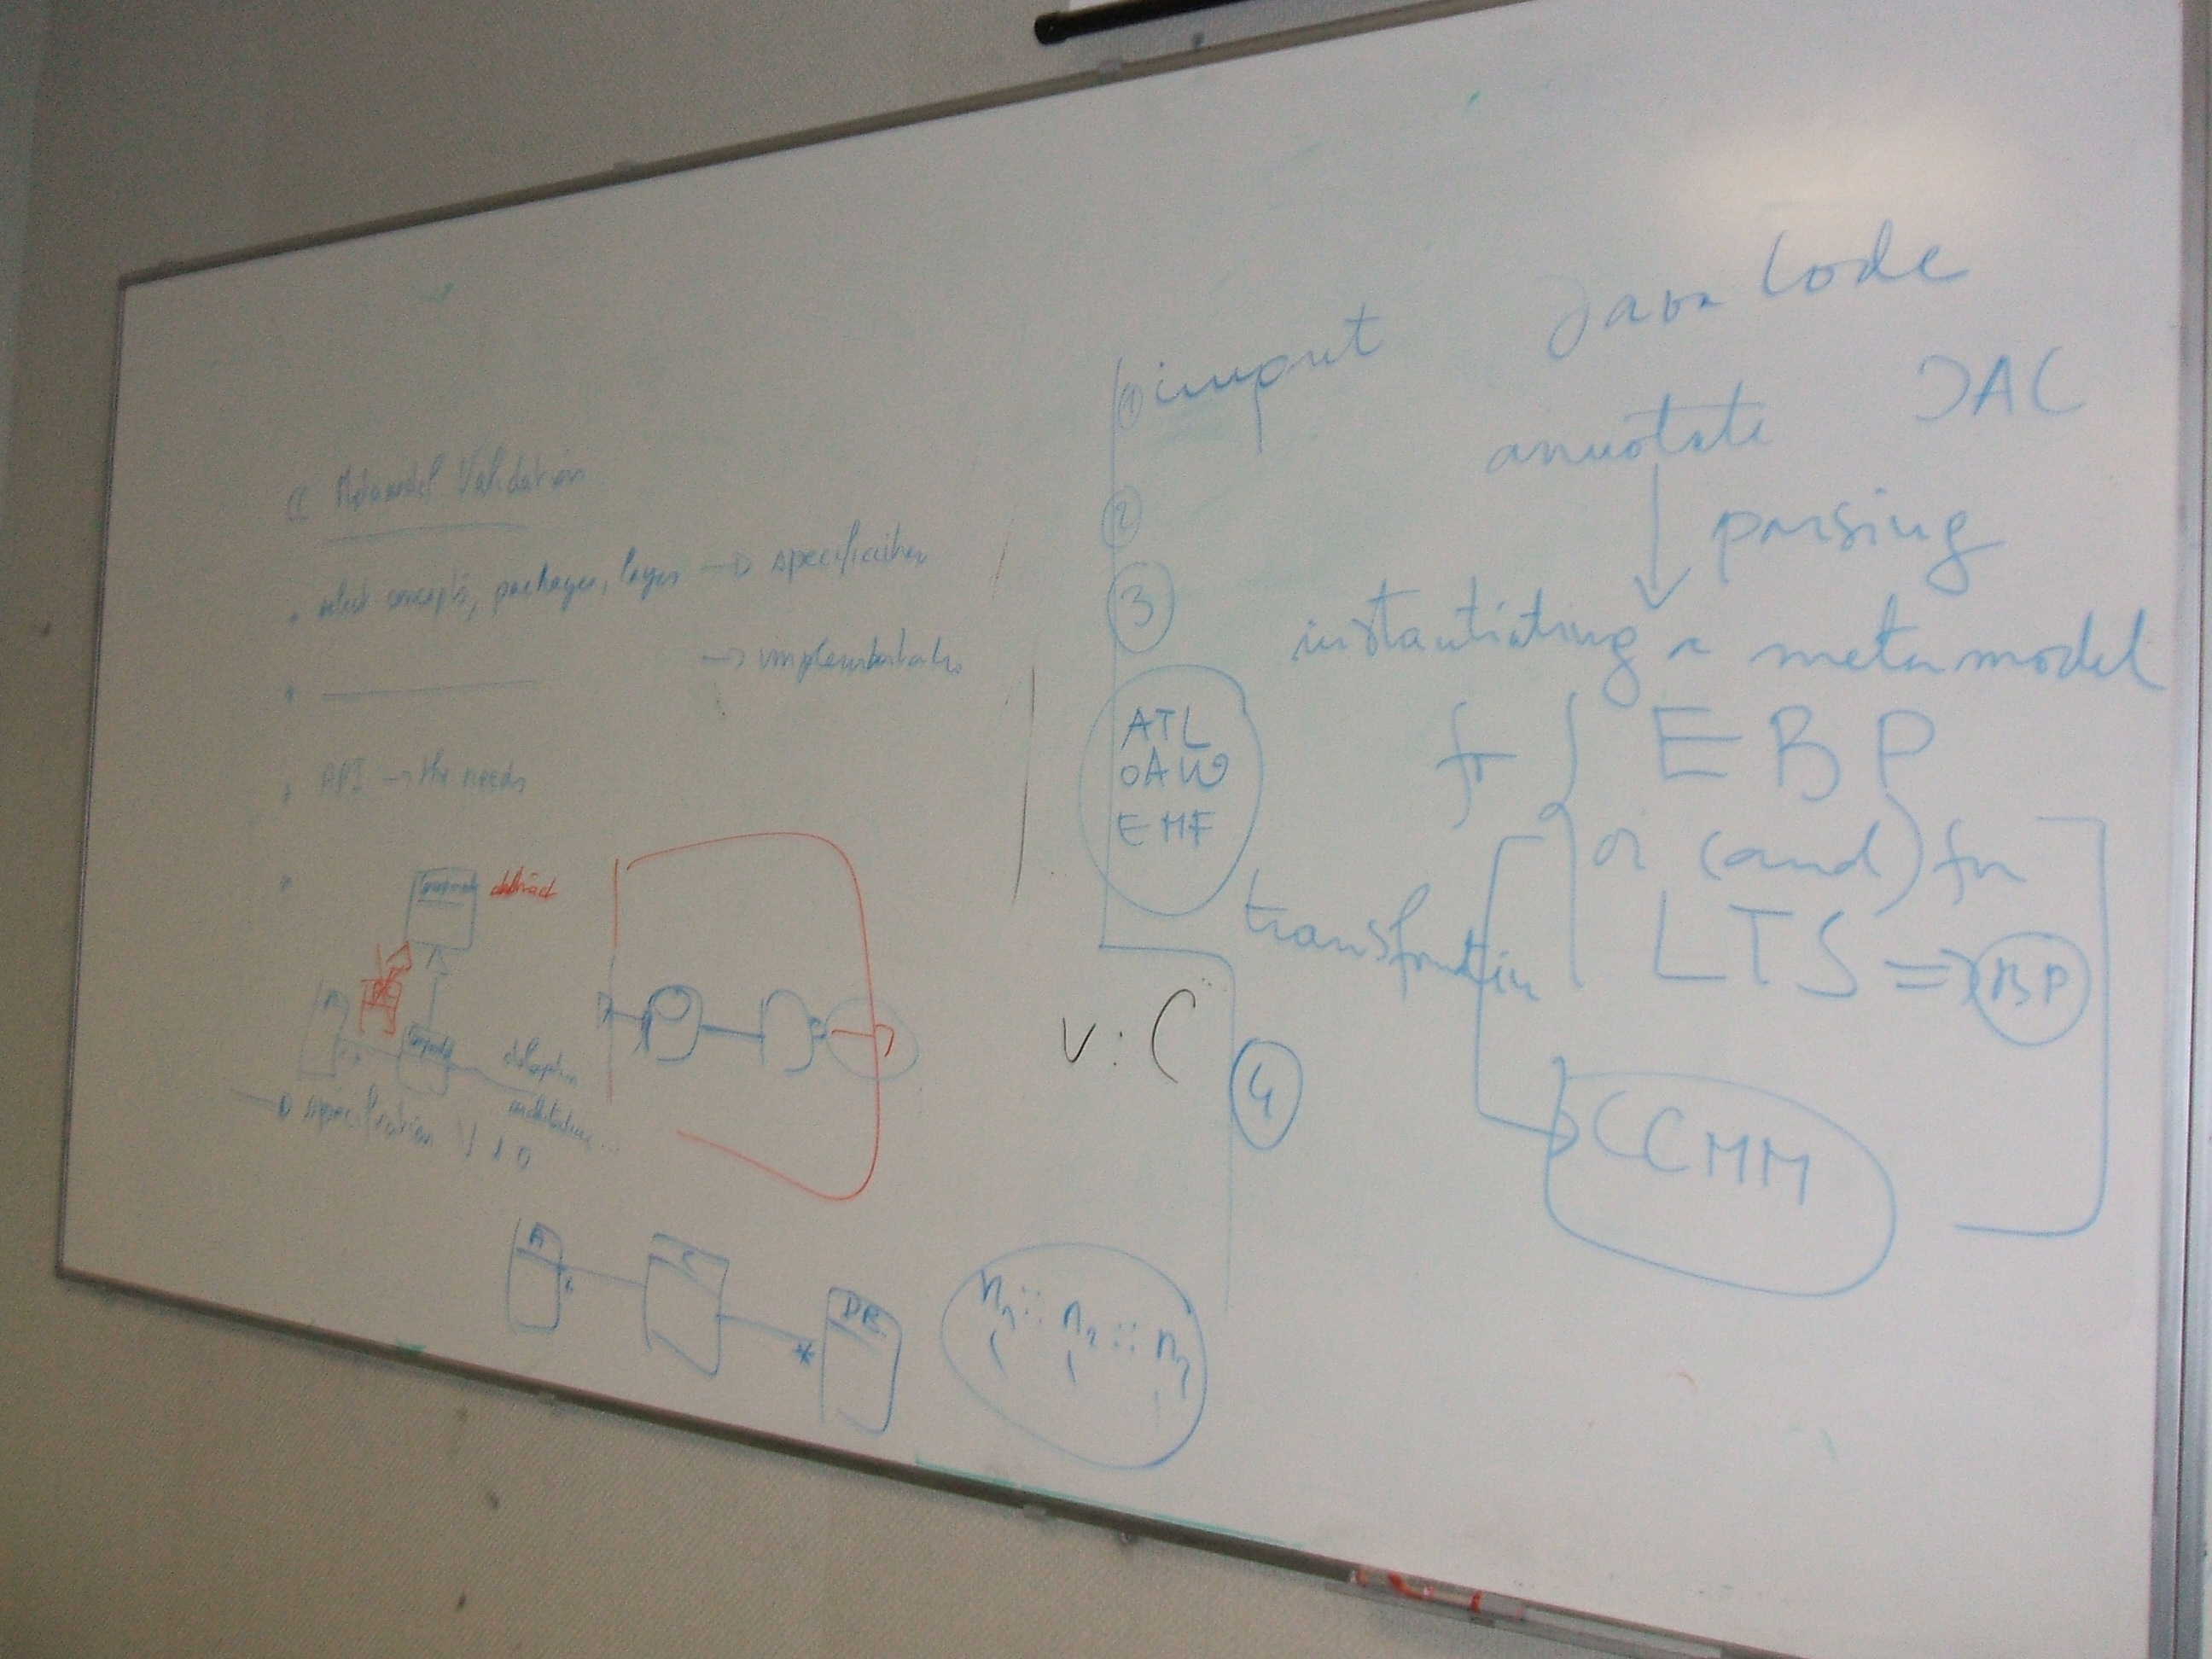 Metamodel Validation
select concepts, packages, layers → specification
→ implementation
API → the needs
abstract
→ specification V 1 0
A
C
DB
n1 :: n2 :: n3
① input Java Code
annotate JAC
②
parsing
③ instantiating a metamodel
ATL
OAW
EMF
for { EBP
or (and) for
LTS ⇒ BP
transformation
v : C
④
CCMM